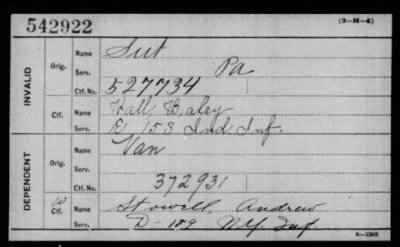 542922 (3-H-4)
INVALID
Orig.
Name Sut
Serv. Pa
Ctf. No. 527734
Ctf.
Name Hall
Serv. E 153 Ind Inf.
DEPENDENT
Orig.
Name Van
Serv.
Ctf. No. 372931
W Ctf.
Name Stowell, Andrew
Serv. D-189 N.Y. Inf